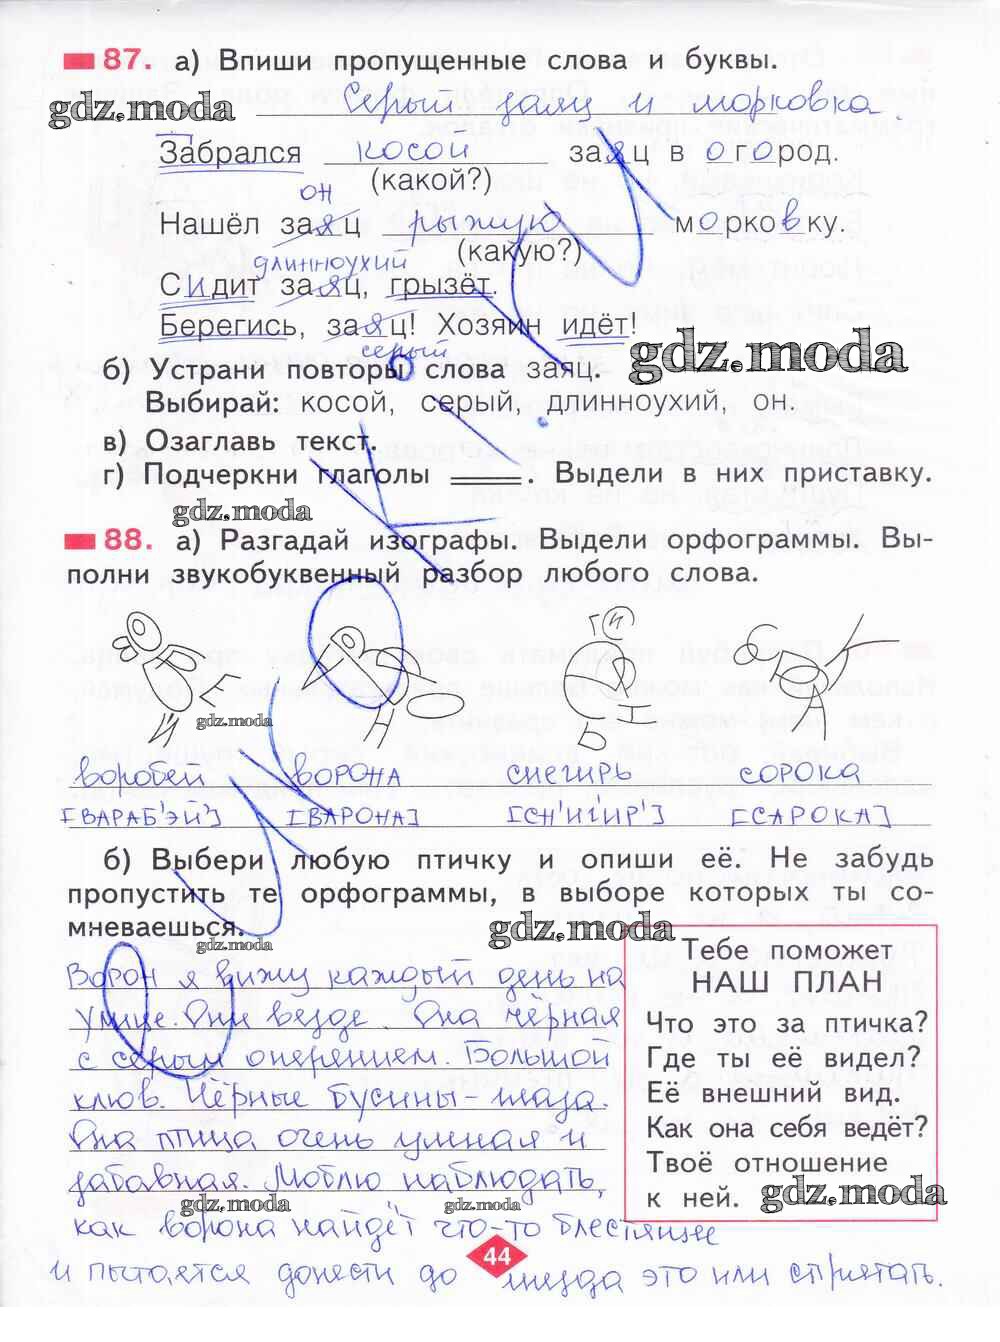 87. а) Впиши пропущенные слова и буквы.
gdz.moda
Серый заяц и морковка
Забрался косой заяц в огород.
(какой?)
он
Нашёл заяц рыжую морковку.
(какую?)
длинноухий
Сидит заяц, грызёт.
Берегись, заяц! Хозяин идёт!
серый
gdz.moda
б) Устрани повторы слова заяц.
Выбирай: косой, серый, длинноухий, он.
в) Озаглавь текст.
г) Подчеркни глаголы ____. Выдели в них приставку.
gdz.moda
88. а) Разгадай изографы. Выдели орфограммы. Вы-
полни звукобуквенный разбор любого слова.
Г И
gdz.moda
воробей ворона снегирь сорока
[ВАРАБ'ЭЙ'] [ВАРОНА] [СН'ИГ'ИР'] [САРОКА]
б) Выбери любую птичку и опиши её. Не забудь
пропустить те орфограммы, в выборе которых ты со-
мневаешься.
gdz.moda
gdz.moda
Тебе поможет
НАШ ПЛАН
Что это за птичка?
Где ты её видел?
Её внешний вид.
Как она себя ведёт?
Твоё отношение
к ней.
gdz.moda
Ворон я вижу каждый день на
улице. Они везде. Она чёрная
с серым оперением. Большой
клюв. Чёрные бусины-глаза.
Она птица очень умная и
забавная. Люблю наблюдать,
gdz.moda
gdz.moda
как ворона найдёт что-то блестящее
44
и пытается донести до гнезда это или спрятать.